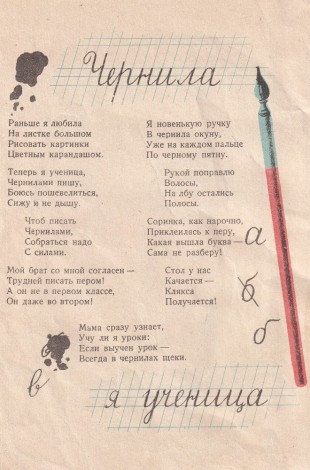 Чернила
Раньше я любила
На листке большом
Рисовать картинки
Цветным карандашом.
Теперь я ученица,
Чернилами пишу,
Боюсь пошевелиться,
Сижу и не дышу.
Чтоб писать
Чернилами,
Собраться надо
С силами.
Мой брат со мной согласен —
Трудней писать пером!
А он не в первом классе,
Он даже во втором!
Я новенькую ручку
В чернила окуну,
Уже на каждом пальце
По черному пятну.
Рукой поправлю
Волосы,
На лбу остались
Полосы.
Соринка, как нарочно,
Приклеилась к перу,
Какая вышла буква —
Сама не разберу!
Стол у нас
Качается —
Клякса
Получается!
Мама сразу узнает,
Учу ли я уроки:
Если выучен урок —
Всегда в чернилах щеки.
а
б
б
в
я ученица